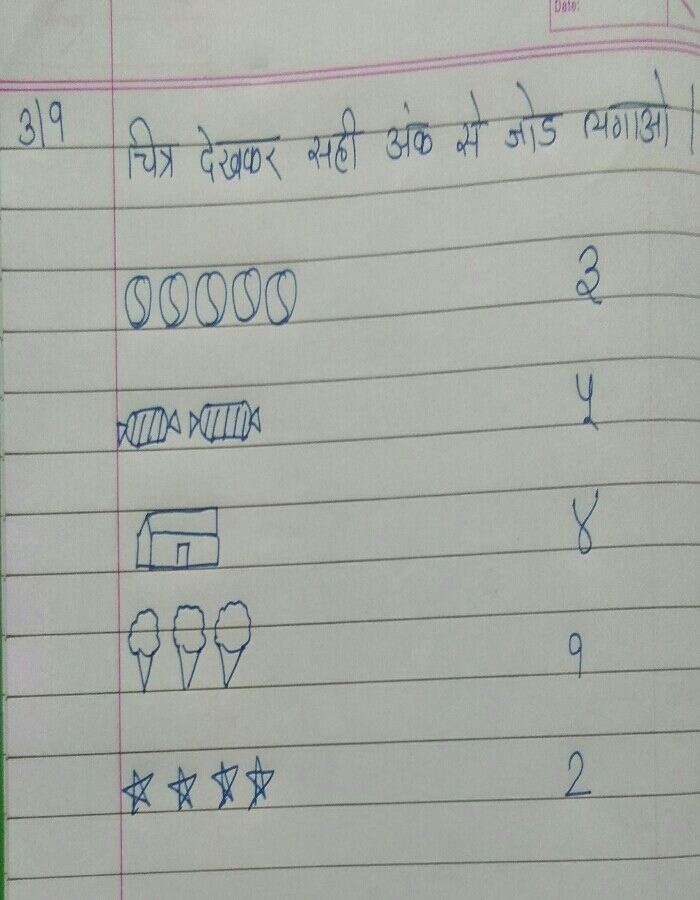 Date:
3/9
चित्र देखकर सही अंक से जोड लगाओ |
३
५
४
१
2